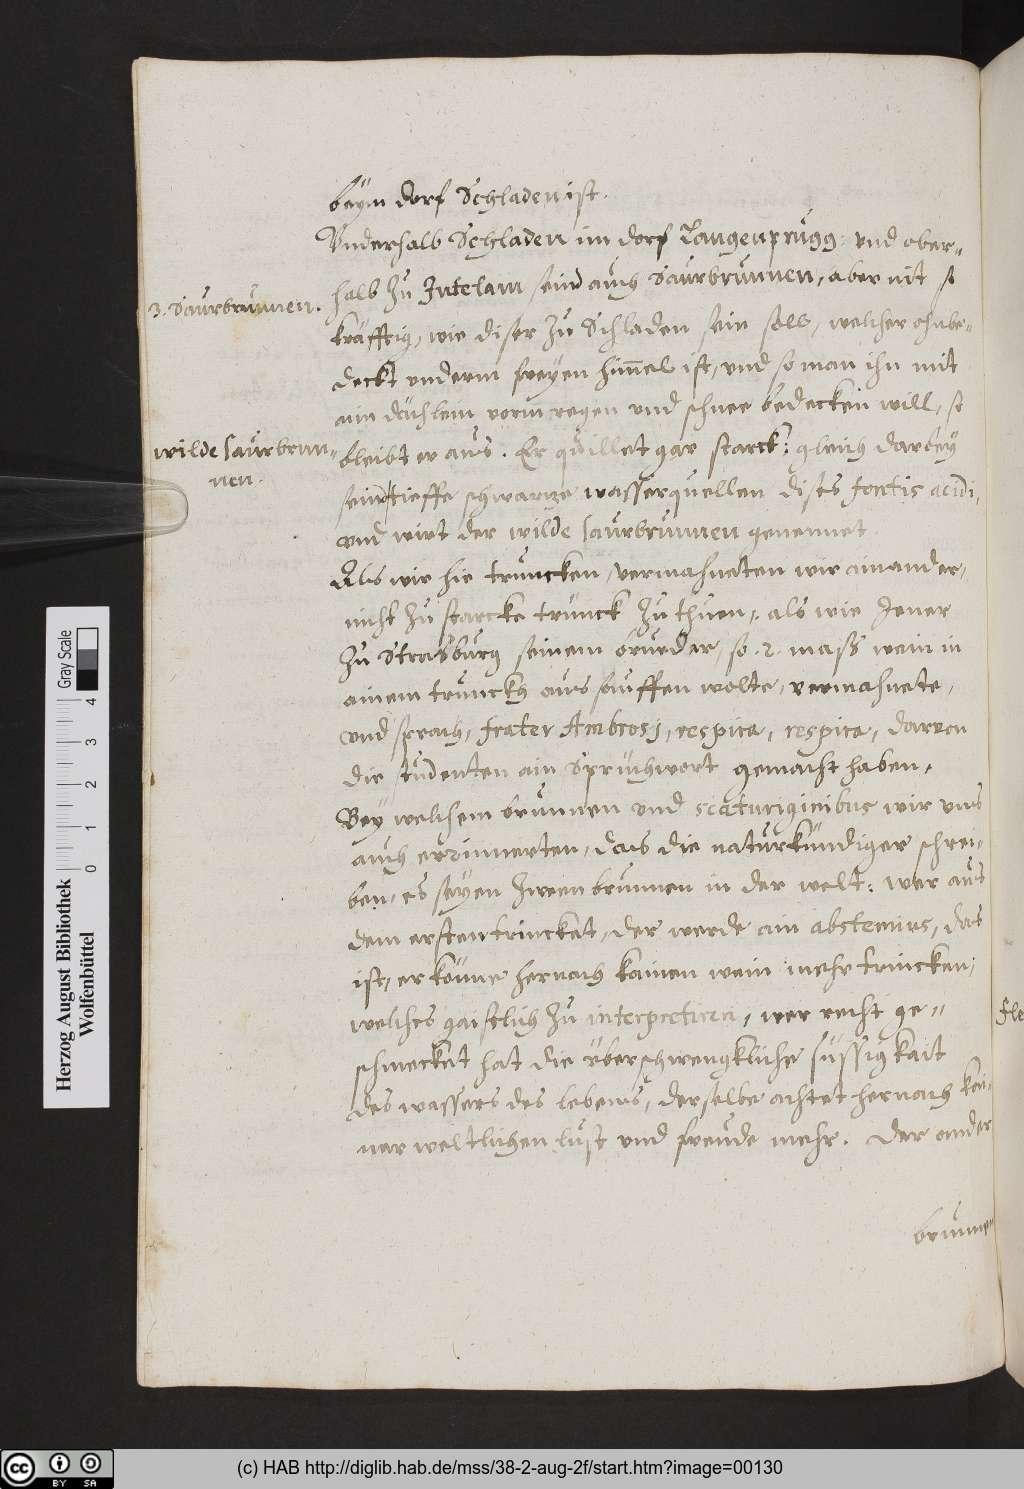 beÿm dorf Schladen ist.
Vnderhalb Schladen im dorf Langenprugg: vnd ober„
3. Saurbrunnen.
halb zu Intelam seind auch Saurbrunnen, aber nit so
kräfftig, wie diser zu Schladen sein soll, welcher ohnbe„
deckt vnderm freyen him̄el ist, vnd so man ihn mit
ain dächlein vorm regen vnd schnee bedecken will, so
wilde saurbrun„
nen.
bleibt er aus. Er quillet gar starck: gleich darbeÿ
sein tieffe schwartze wasserquellen dises fontis acidi,
vnd wirt der wilde saurbrunnen genennet.
Als wir hie truncken, vermahneten wir ainander,
nicht zu starcke trünck zu thuen, als wie Jener
zu Strasburg seinem bruder, so .2. maß wein in
ainem trunckh aus sauffen wolte, vermahnete,
vnd sprach, frater Ambrosj, respira, respira, darvon
die studenten ain Sprichwort gemacht haben.
Beÿ welchem brunnen vnd scaturiginibus wir vns
auch erinnerten, das die naturkündiger schrei„
ben, es seyen zween brunnen in der welt: wer aus
dem ersten trincket, der werde ain abstemius, das
ist, er könne hernach kainen wein mehr trincken;
welches gaistlich zu interpretiren, wer recht ge„
schmecket hat die überschwengkliche süssigkait
des wassers des lebens, derselbe achtet hernach kai„
ner weltlichen lust vnd freude mehr. Der ander
brunnen
Herzog August Bibliothek
Wolfenbüttel
0 1 2 3 4
Gray Scale
CC BY SA
(c) HAB http://diglib.hab.de/mss/38-2-aug-2f/start.htm?image=00130